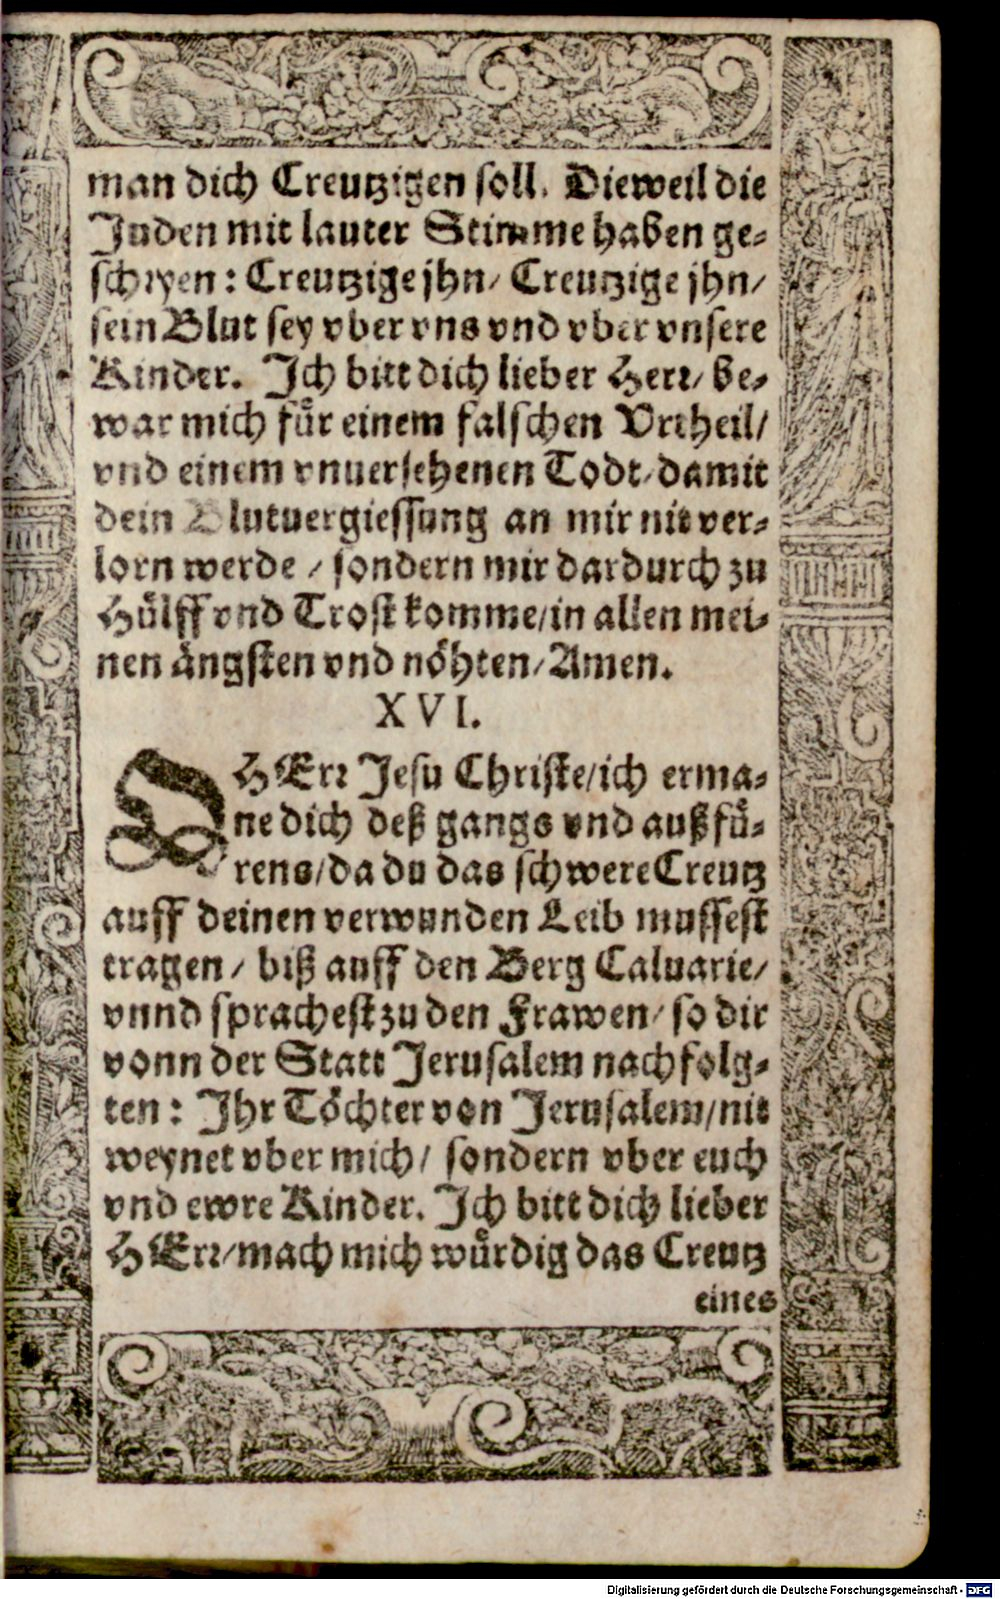 man dich Creutzigen soll. Dieweil die
Juden mit lauter Stimme haben ge-
schryen: Creutzige jhn/ Creutzige jhn/
sein Blut sey vber vns vnd vber vnsere
Kinder. Ich bitt dich lieber Herr/ be-
war mich für einem falschen Vrtheil/
vnd einem vnuersehenen Todt/ damit
dein Blutuergiessung an mir nit ver-
lorn werde / sondern mir dardurch zu
Hülff vnd Trost komme/ in allen mei-
nen ängsten vnd nöhten/ Amen.
XVI.
O HErr Jesu Christe/ ich erma-
ne dich deß gangs vnd außfü-
rens/ da du das schwere Creutz
auff deinen verwunden Leib mussest
tragen / biß auff den Berg Caluarie/
vnnd sprachest zu den Frawen/ so dir
vonn der Statt Jerusalem nachfolg-
ten: Ihr Töchter von Jerusalem/ nit
weynet vber mich/ sondern vber euch
vnd ewre Kinder. Ich bitt dich lieber
HErr/ mach mich würdig das Creutz
eines
Digitalisierung gefördert durch die Deutsche Forschungsgemeinschaft - DFG